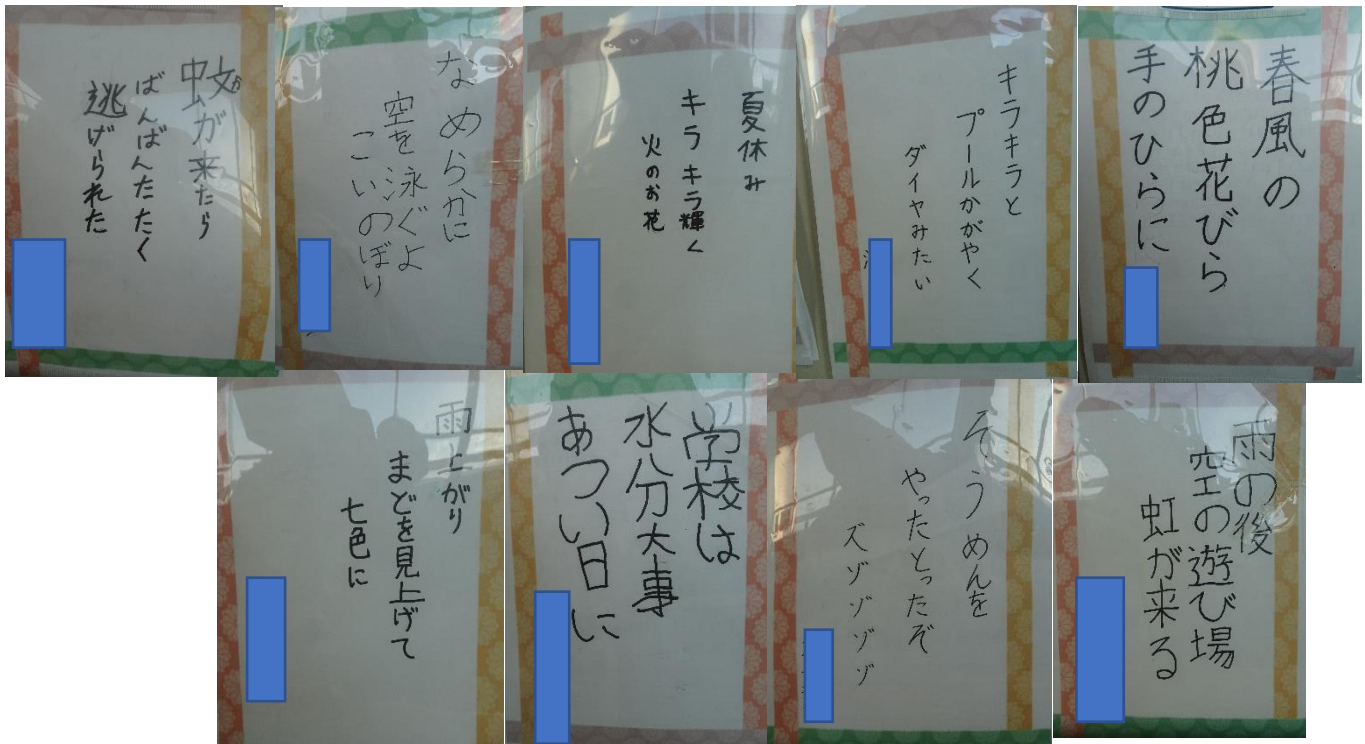 蚊が来たら
ばんばんたたく
逃げられた
なめらかに
空を泳ぐよ
こいのぼり
夏休み
キラキラ輝く
火のお花
キラキラと
プールかがやく
ダイヤみたい
春風の
桃色花びら
手のひらに
雨上がり
まどを見上げて
七色に
学校は
水分大事
あつい日に
そうめんを
やったとったぞ
ズゾゾゾゾ
雨の後
空の遊び場
虹が来る